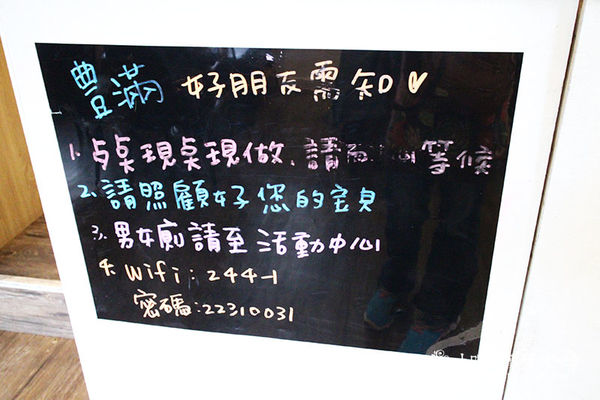 豐滿 好朋友需知♡
1. 桌現桌現做、請耐心等候
2. 請照顧好您的宝貝
3. 男女廁請至活動中心
4. Wifi: 244-1
密碼:22310031